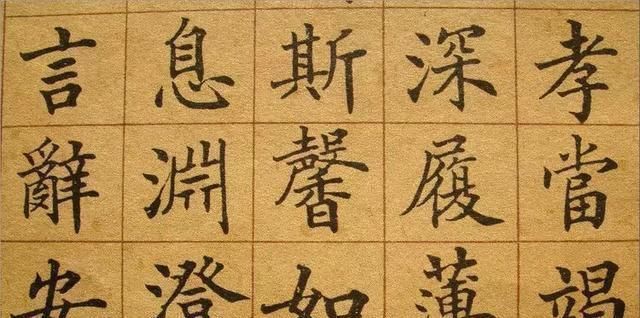 孝當竭
深履薄
斯馨如
息淵澄
言辭安